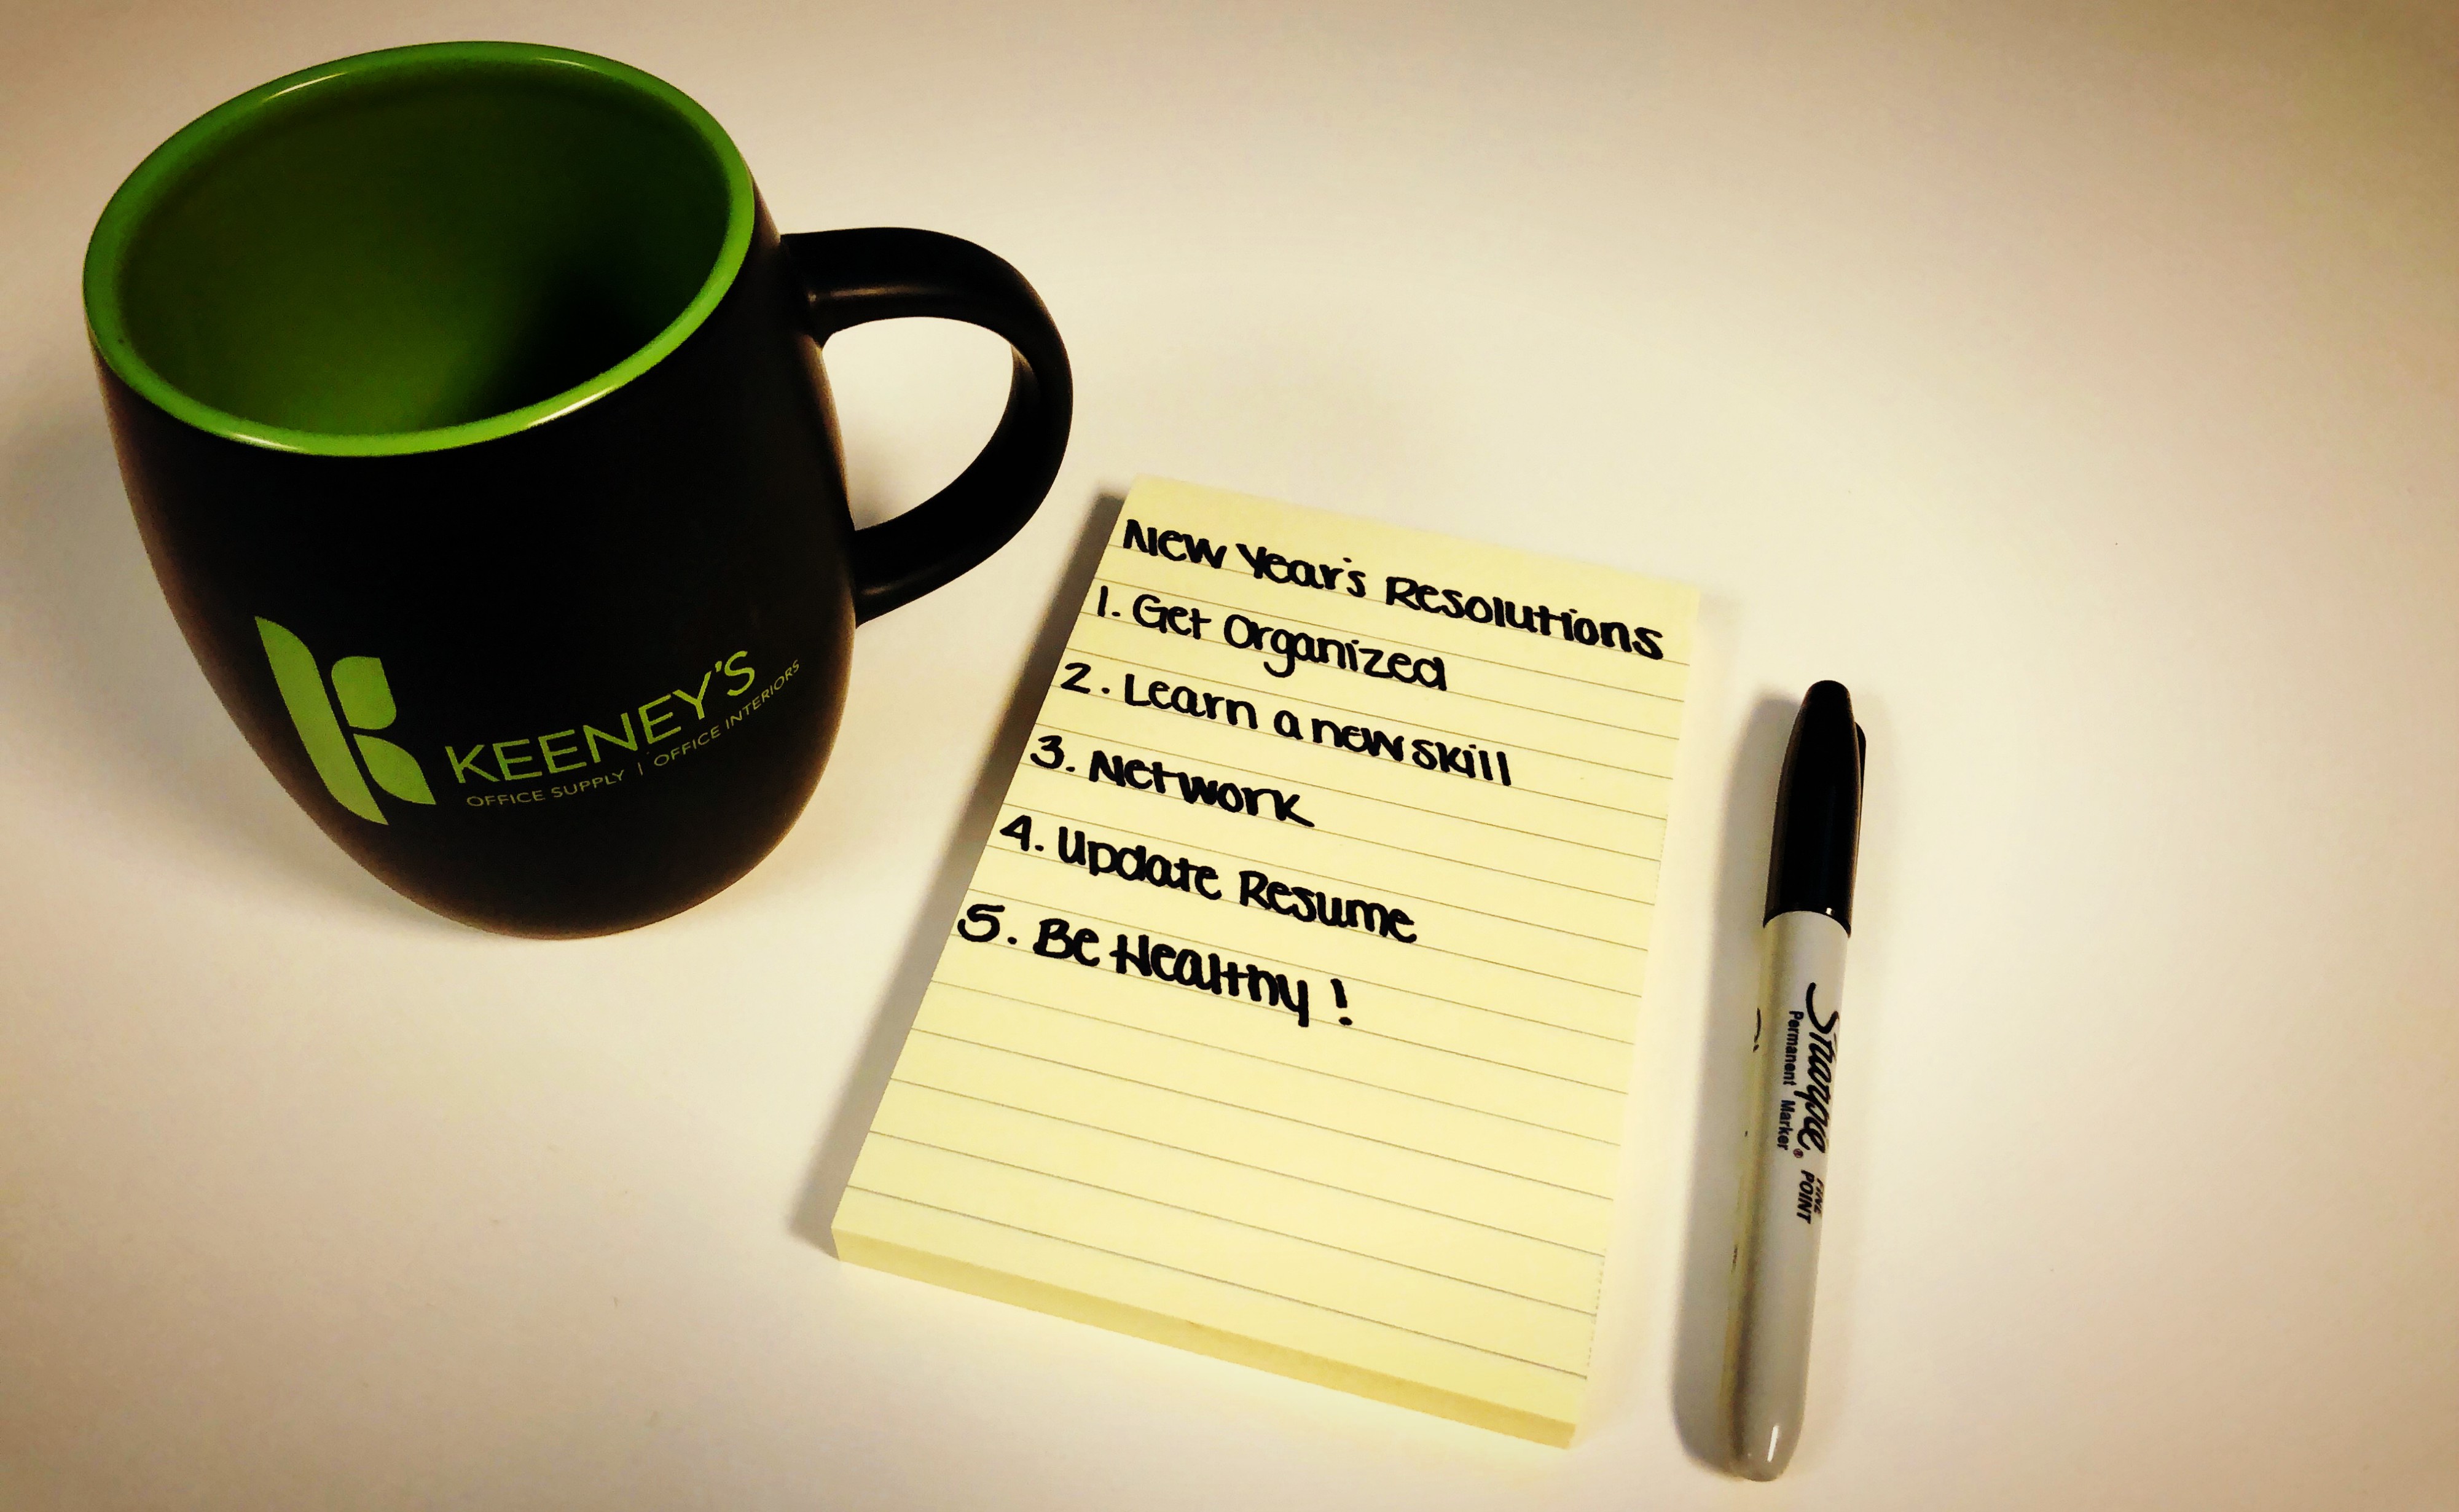 KEENEY'S
OFFICE SUPPLY | OFFICE INTERIORS
New Year's Resolutions
1. Get Organized
2. Learn a new skill
3. Network
4. Update Resume
5. Be Healthy!
Sharpie®
FINE POINT
Permanent Marker